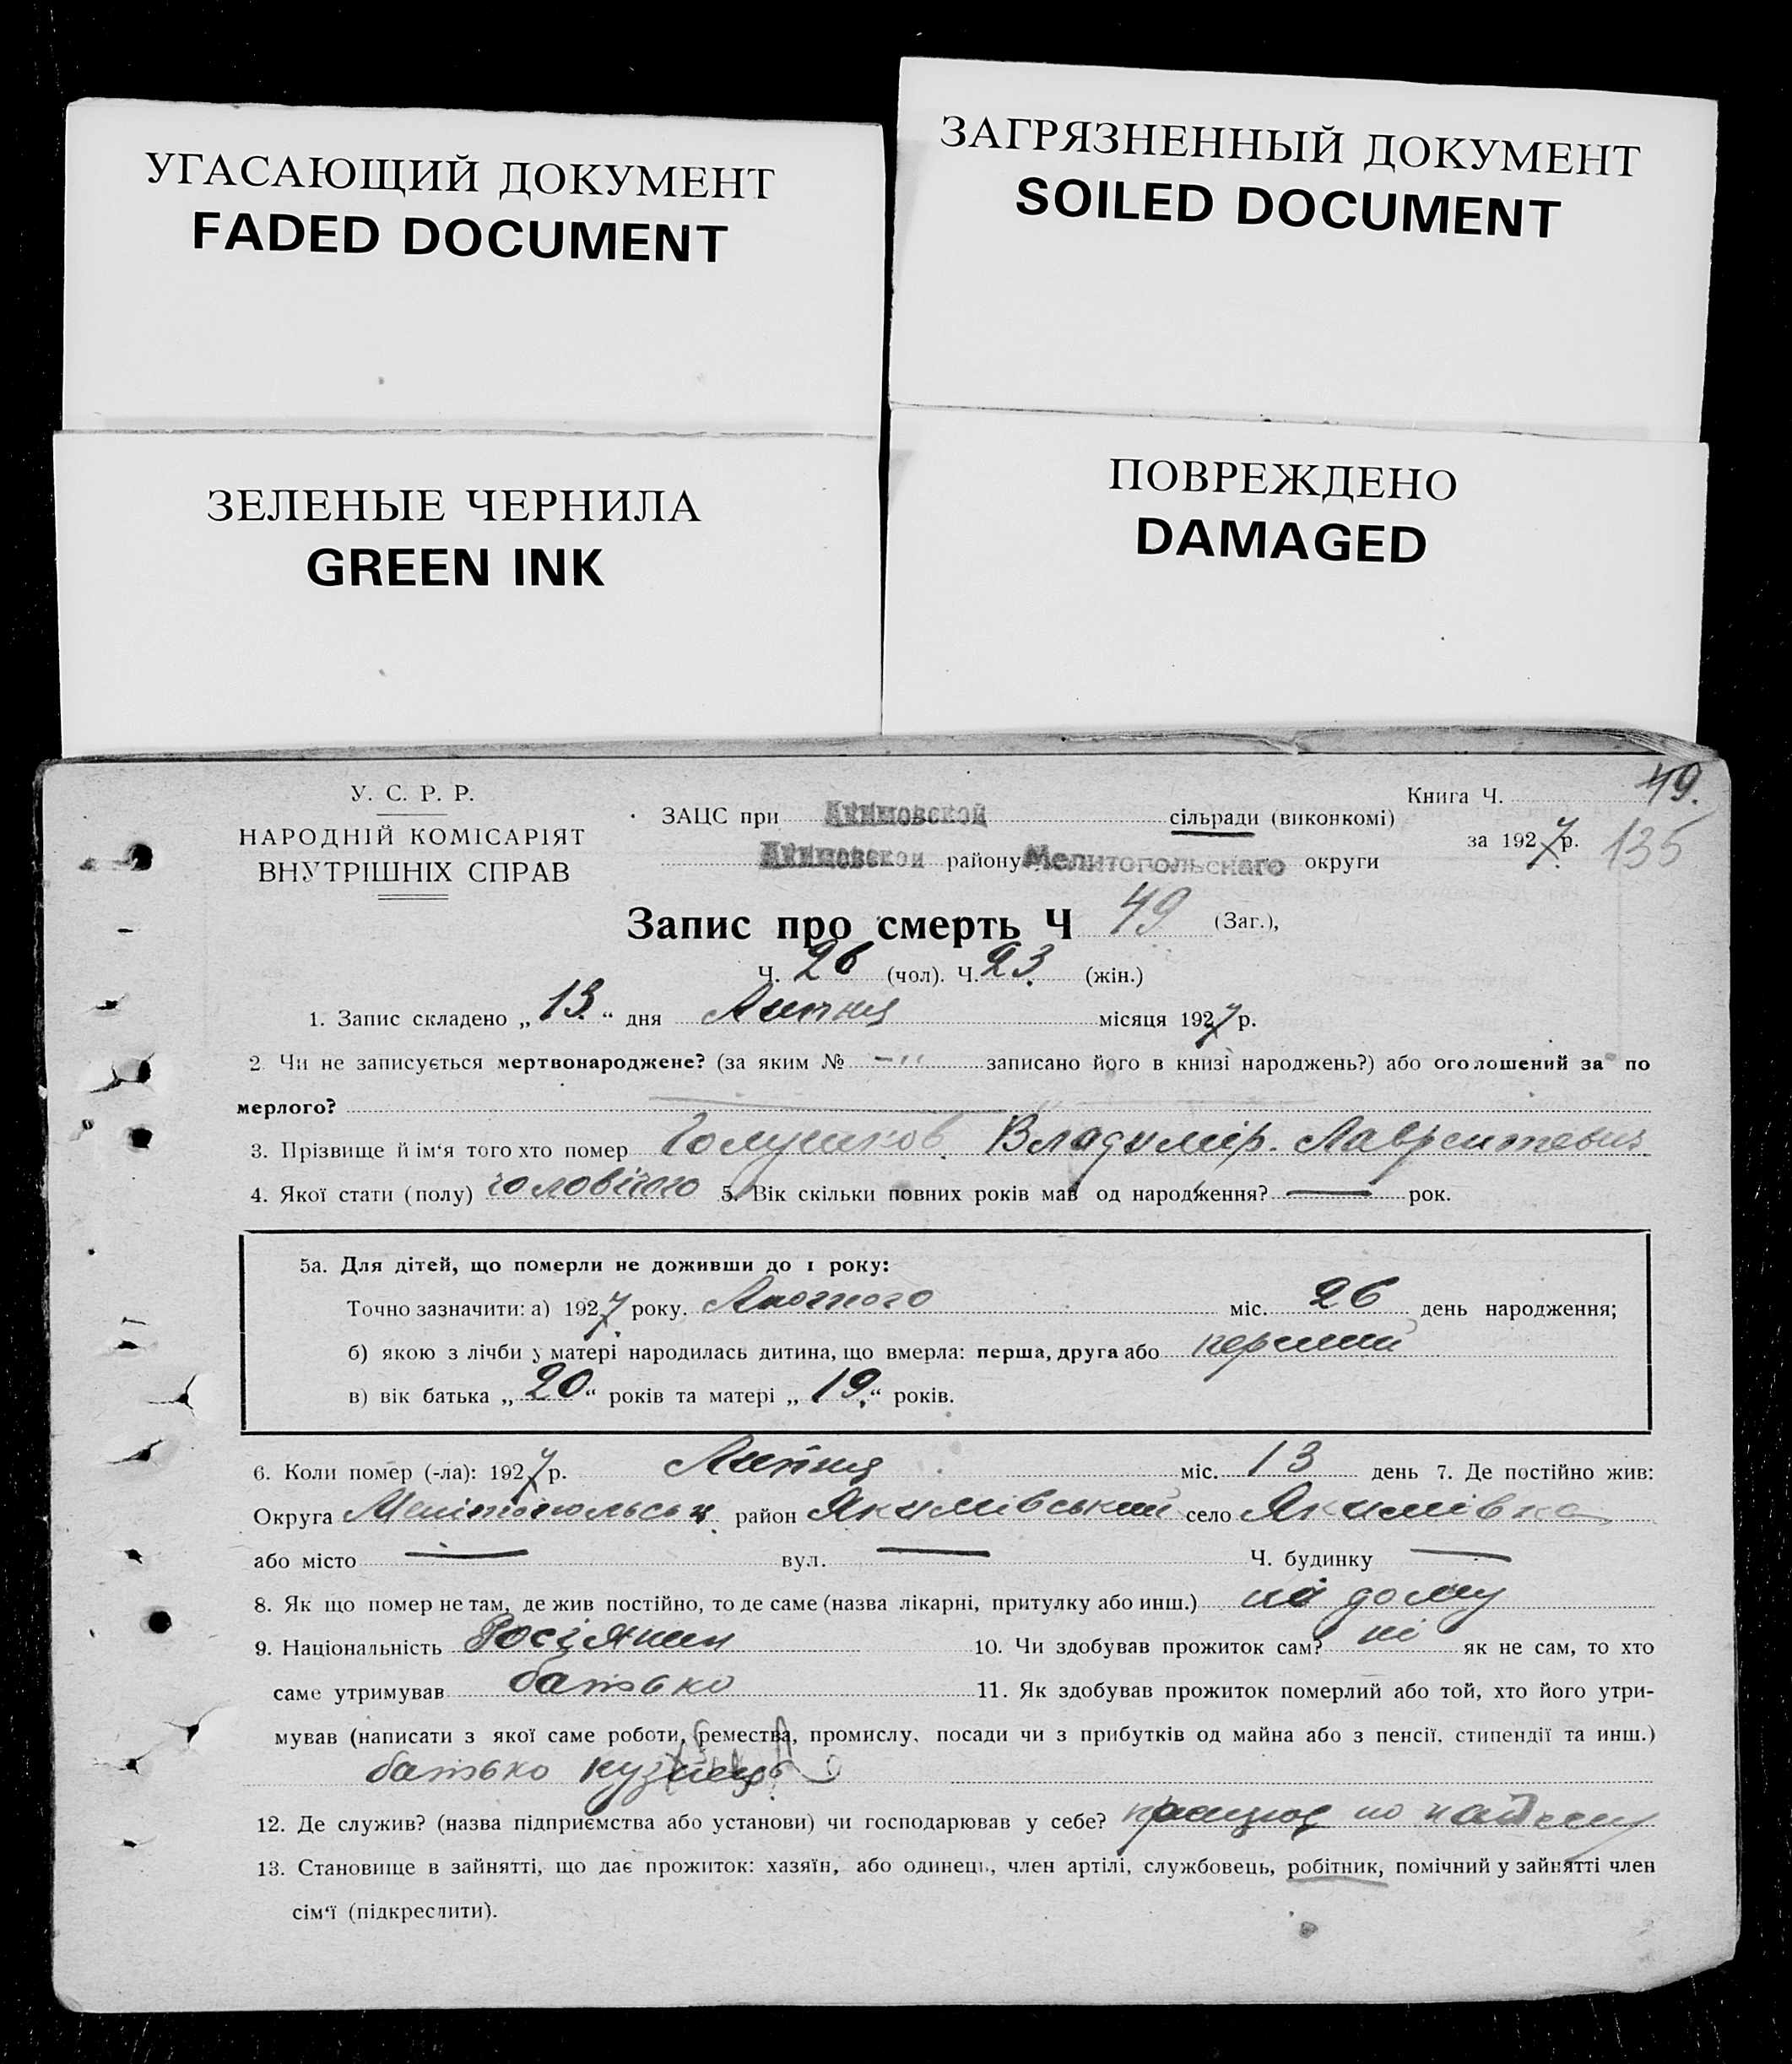 УГАСАЮЩИЙ ДОКУМЕНТ
FADED DOCUMENT
ЗАГРЯЗНЕННЫЙ ДОКУМЕНТ
SOILED DOCUMENT
ЗЕЛЕНЫЕ ЧЕРНИЛА
GREEN INK
ПОВРЕЖДЕНО
DAMAGED
У. С. Р. Р.
НАРОДНІЙ КОМІСАРІЯТ
ВНУТРІШНІХ СПРАВ
ЗАЦС при Акимовской сільради (виконкомі)
Акимовской району Мелитопольскаго округи
Книга Ч. 49.
за 1927 р. 135
Запис про смерть Ч 49 (Заг.),
Ч. 26 (чол). Ч. 23 (жін.)
1. Запис складено „13“ дня Липня місяця 1927 р.
2. Чи не записується мертвонароджене? (за яким № -„ записано його в книзі народжень?) або оголошений за по
мерлого?
3. Прізвище й ім‘я того хто помер Голушков Владимір Лаврентевич
4. Якої стати (полу) чоловічого 5. Вік скільки повних років мав од народження? — рок.
5а. Для дітей, що померли не доживши до 1 року:
Точно зазначити: а) 1927 року. Лютого міс. 26 день народження;
б) якою з лічби у матері народилась дитина, що вмерла: перша, друга або перший
в) вік батька „20“ років та матері „19“ років.
6. Коли помер (-ла): 1927 р. Липня міс. 13 день 7. Де постійно жив:
Округа Мелітопольськ. район Якимівський село Якимівка
або місто — вул. — Ч. будинку —
8. Як що помер не там, де жив постійно, то де саме (назва лікарні, притулку або инш.) на дому
9. Національність Росіянин 10. Чи здобував прожиток сам? ні як не сам, то хто
саме утримував батько 11. Як здобував прожиток померлий або той, хто його утри-
мував (написати з якої саме роботи, ремества, промислу, посади чи з прибутків од майна або з пенсії, стипендії та инш.)
батько кузнець
12. Де служив? (назва підприємства або установи) чи господарював у себе? працює по найму
13. Становище в зайнятті, що дає прожиток: хазяїн, або одинець, член артілі, службовець, робітник, помічний у зайнятті член
сім‘ї (підкреслити).